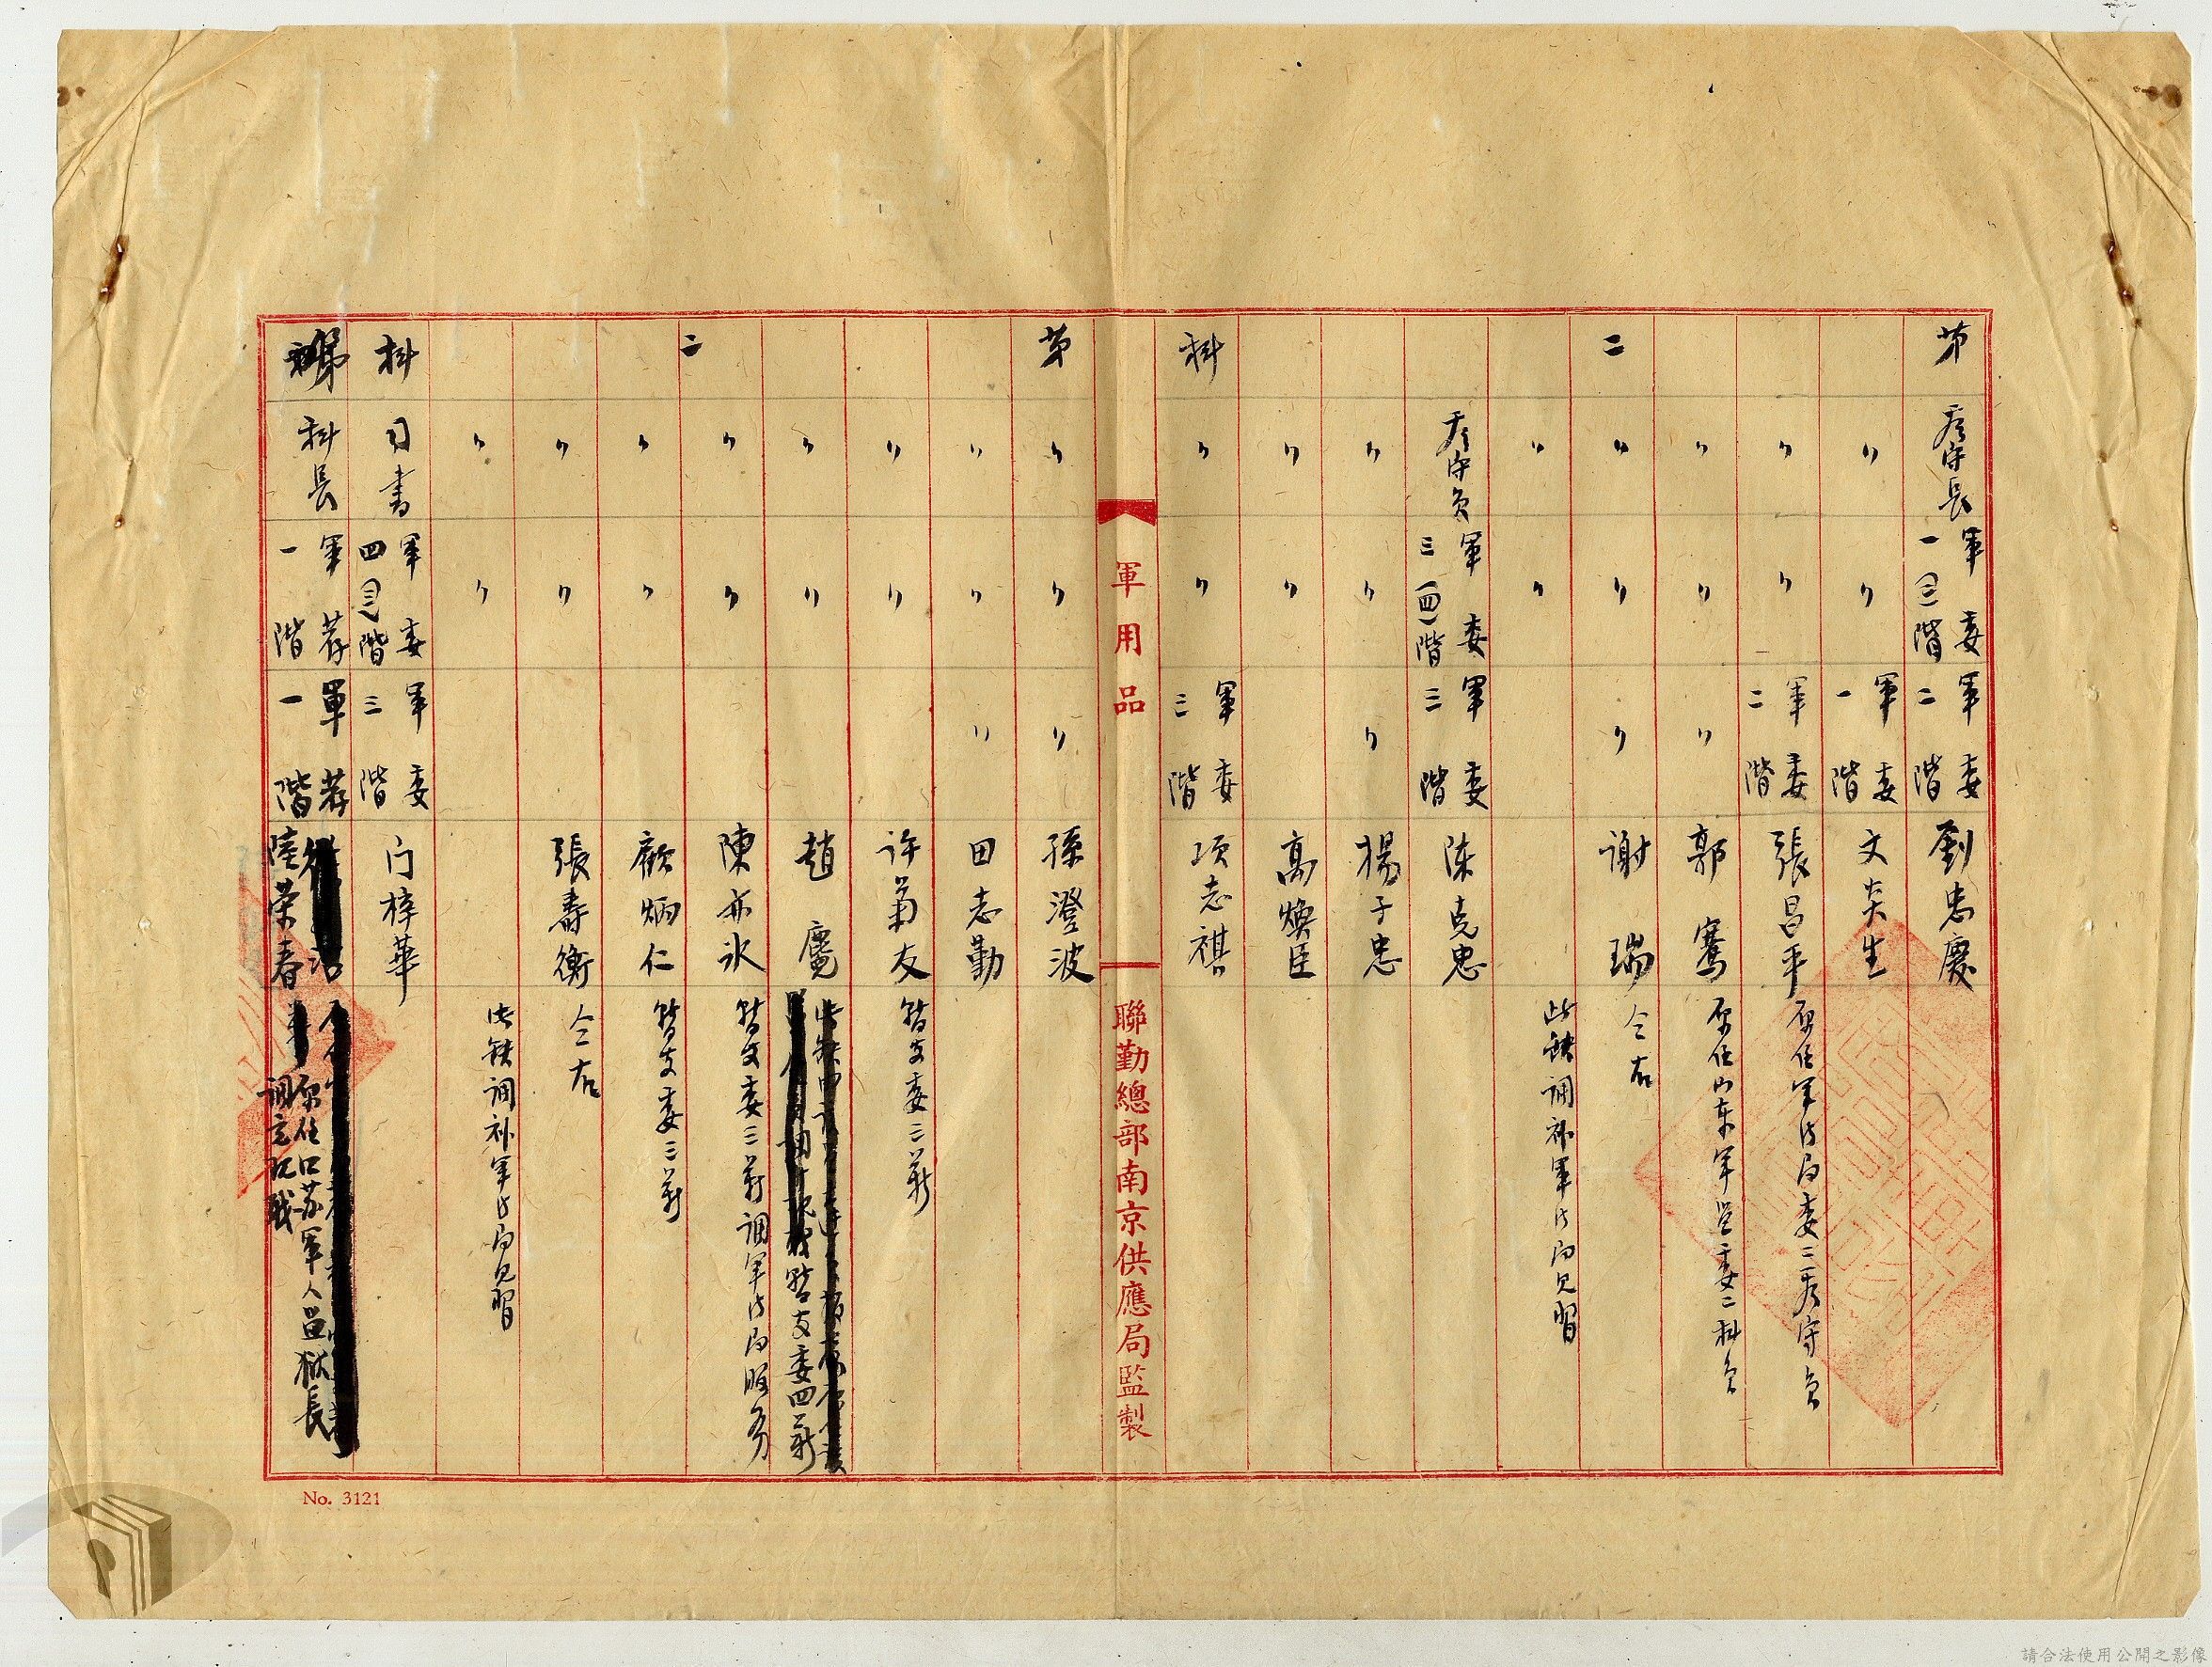 第 看守長 軍委一(三)階 軍委二階 劉忠慶
〃 〃 軍委一階 文炎生
〃 〃 軍委二階 張昌平 原任軍法局委二看守員
〃 〃 〃 郭騫 原任山東軍監委二科員
二 〃 〃 〃 謝瑞 仝右
〃 〃 此缺調補軍法局見習
看守員 軍委三(四)階 軍委三階 陈克忠
〃 〃 〃 楊子忠
〃 〃 高煥臣
科 〃 〃 軍委三階 項志祺
軍用品
聯勤總部南京供應局監製
第 〃 〃 〃 孫澄波
〃 〃 〃 田志勤
〃 〃 许菊友 暫支委三薪
〃 〃 趙 暫支委四薪
二 〃 〃 陳亦冰 暫支委三薪調軍法局服务
〃 〃 顧炳仁 暫支委三薪
〃 〃 張壽衡 仝右
〃 〃 此缺調補軍法局見習
科 司書 軍委四(三)階 軍委三階 门梓華
第 科長 軍荐一階 軍荐一階 陸荣春 原任江苏軍人監獄長調充現職
No. 3121
請合法使用公開之影像